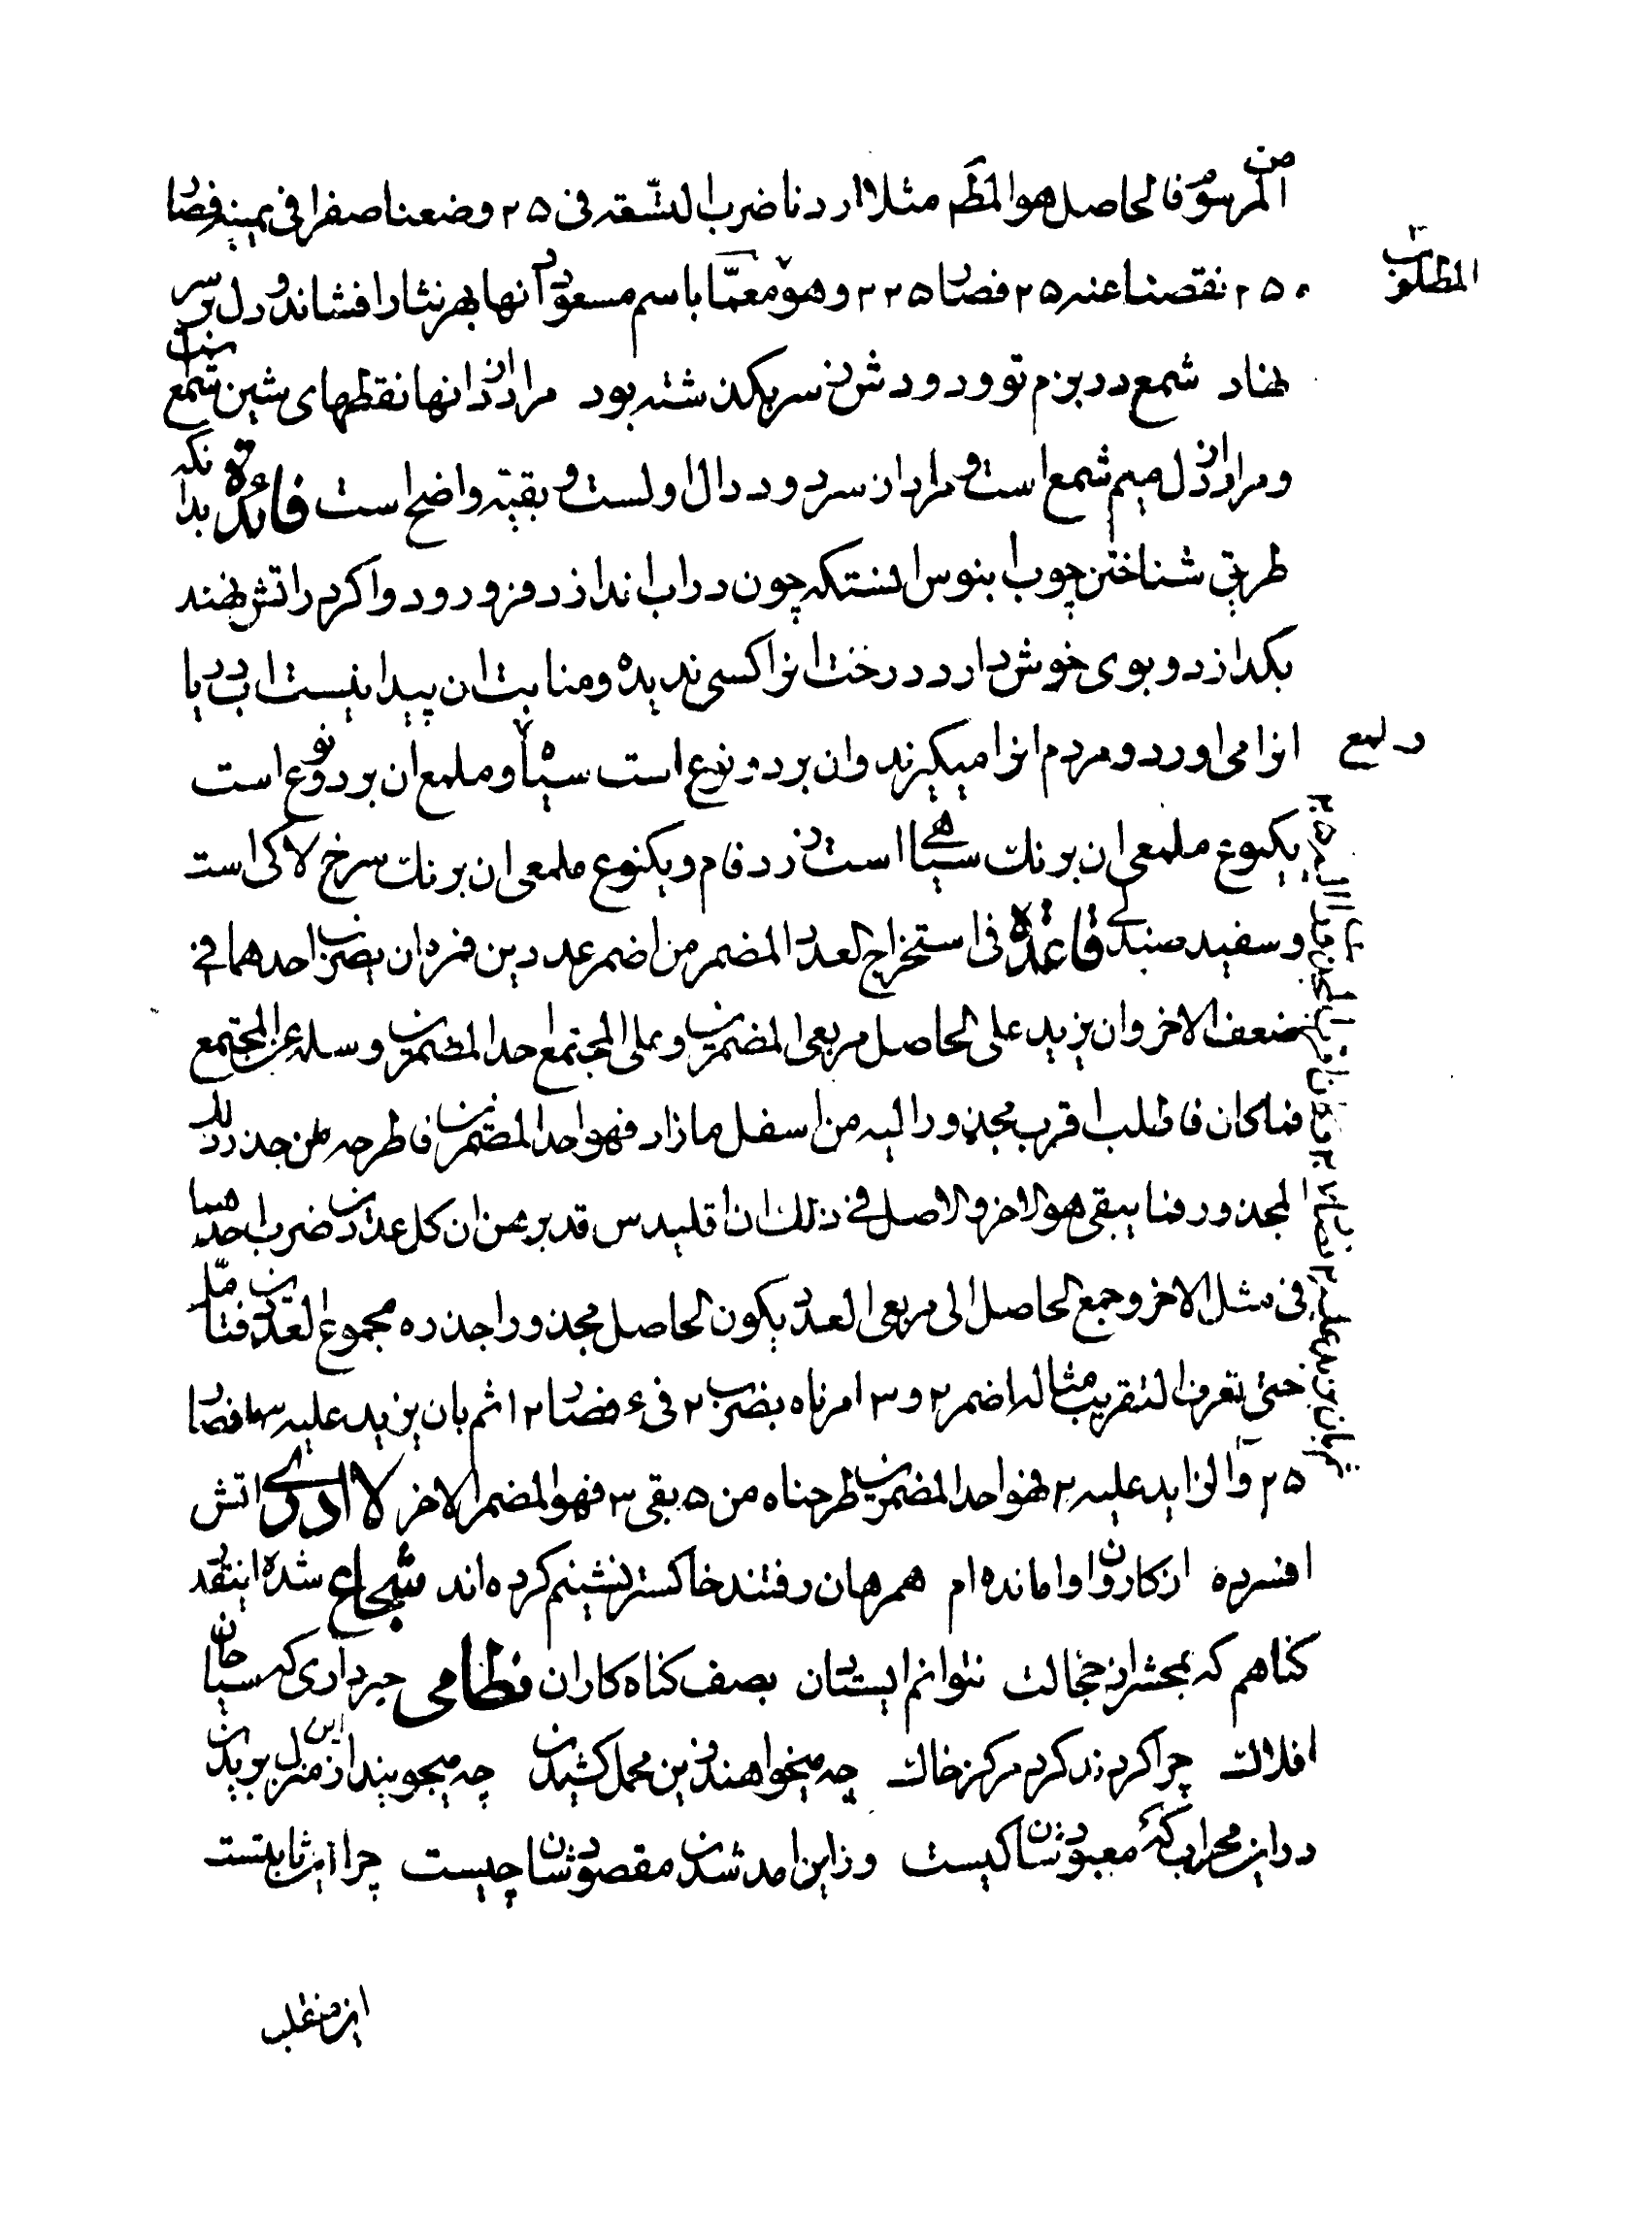 من المرسوم فالحاصل هو المط مثلا اردنا ضرب التسعة فی ۲۵ وضعنا صفرا فی یمینه فصار
۲۵۰ نقصنا عنه ۲۵ فصار ۲۲۵ و هو المطلوب معما باسم مسعود آنها بهر نثار افشاند و دل بر سر
نهاد شمع در بزم تو و دودش ز سر بگذشته بود مراد از آنها نقطهای شین شمع است
و مراد از دل میم شمع است و مراد از سر دود دال اولست و بقیه واضح است فائدة بدانکه
طریق شناختن چوب ابنوس انستکه چون در اب اندازد فرو رود و اگر در اتش نهند
بگدازد و بوی خوش دارد درخت انرا کسی ندیده و منابت ان پیدا نیست اب دریا
انرا می اورد و مردم انرا میگیرند و ان بر دو نوع است سیاه و ملمع و ملمع ان بر دو نوع است
یکنوع ملمعی ان برنک سیاهی است زردفام و یکنوع ملمعی ان برنک سرخ لاکی است
و سفید صندلی قاعدة فی استخراج العدد المضمر من اضمر عددین فمره ان یضرب احدهما فی
ضعف الاخر و ان یزید علی الحاصل مربعی المضمرین و علی المجتمع احد المضمرین و سله عن المجتمع
فما کان فاطلب اقرب مجذور الیه من اسفل ما زاد فهو احد المضمرین فاطرحه من جذر ذلک
المجذور فما یبقی هو الاخر و الاصل فی ذلک ان اقلیدس قد برهن ان کل عددین ضرب احدهما
فی مثل الاخر و جمع الحاصل الی مربعی العدد یکون الحاصل مجذورا جذره مجموع العددین فتامل
حتی تعرف التقریب مثاله اضمر ۲ و ۳ امرناه بضرب ۲ فی ۶ فصار ۱۲ ثم بان یزید علیه ۱۳ فصار
۲۵
و الزاید علیه ۲ فهو احد المضمرین طرحناه من ۵ بقی ۳ فهو المضمر الاخر لا ادری اتش
افسرده از کاروان وامانده ام همرهان رفتند خاکستر نشینم کرده اند شجاع شده اینقدر
کناهم که بمحشر از خجالت نتوانم ایستادن بصف کناه کاران نظامی خبر داری که سیاحان
افلاک چرا کردند کرد مرکز خاک چه میخواهند زین محمل کشیدن چه میجویند از این منزل بریدن
در این محراب که معبودشان کیست وزین امد شدن مقصودشان چیست چرا این ثابتست
این منقلب